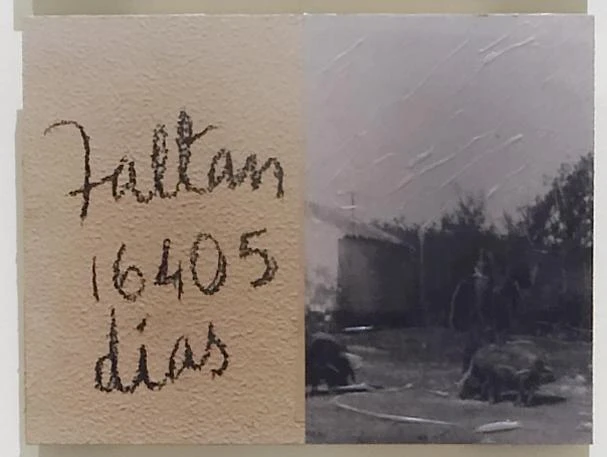 Faltan
16405
días